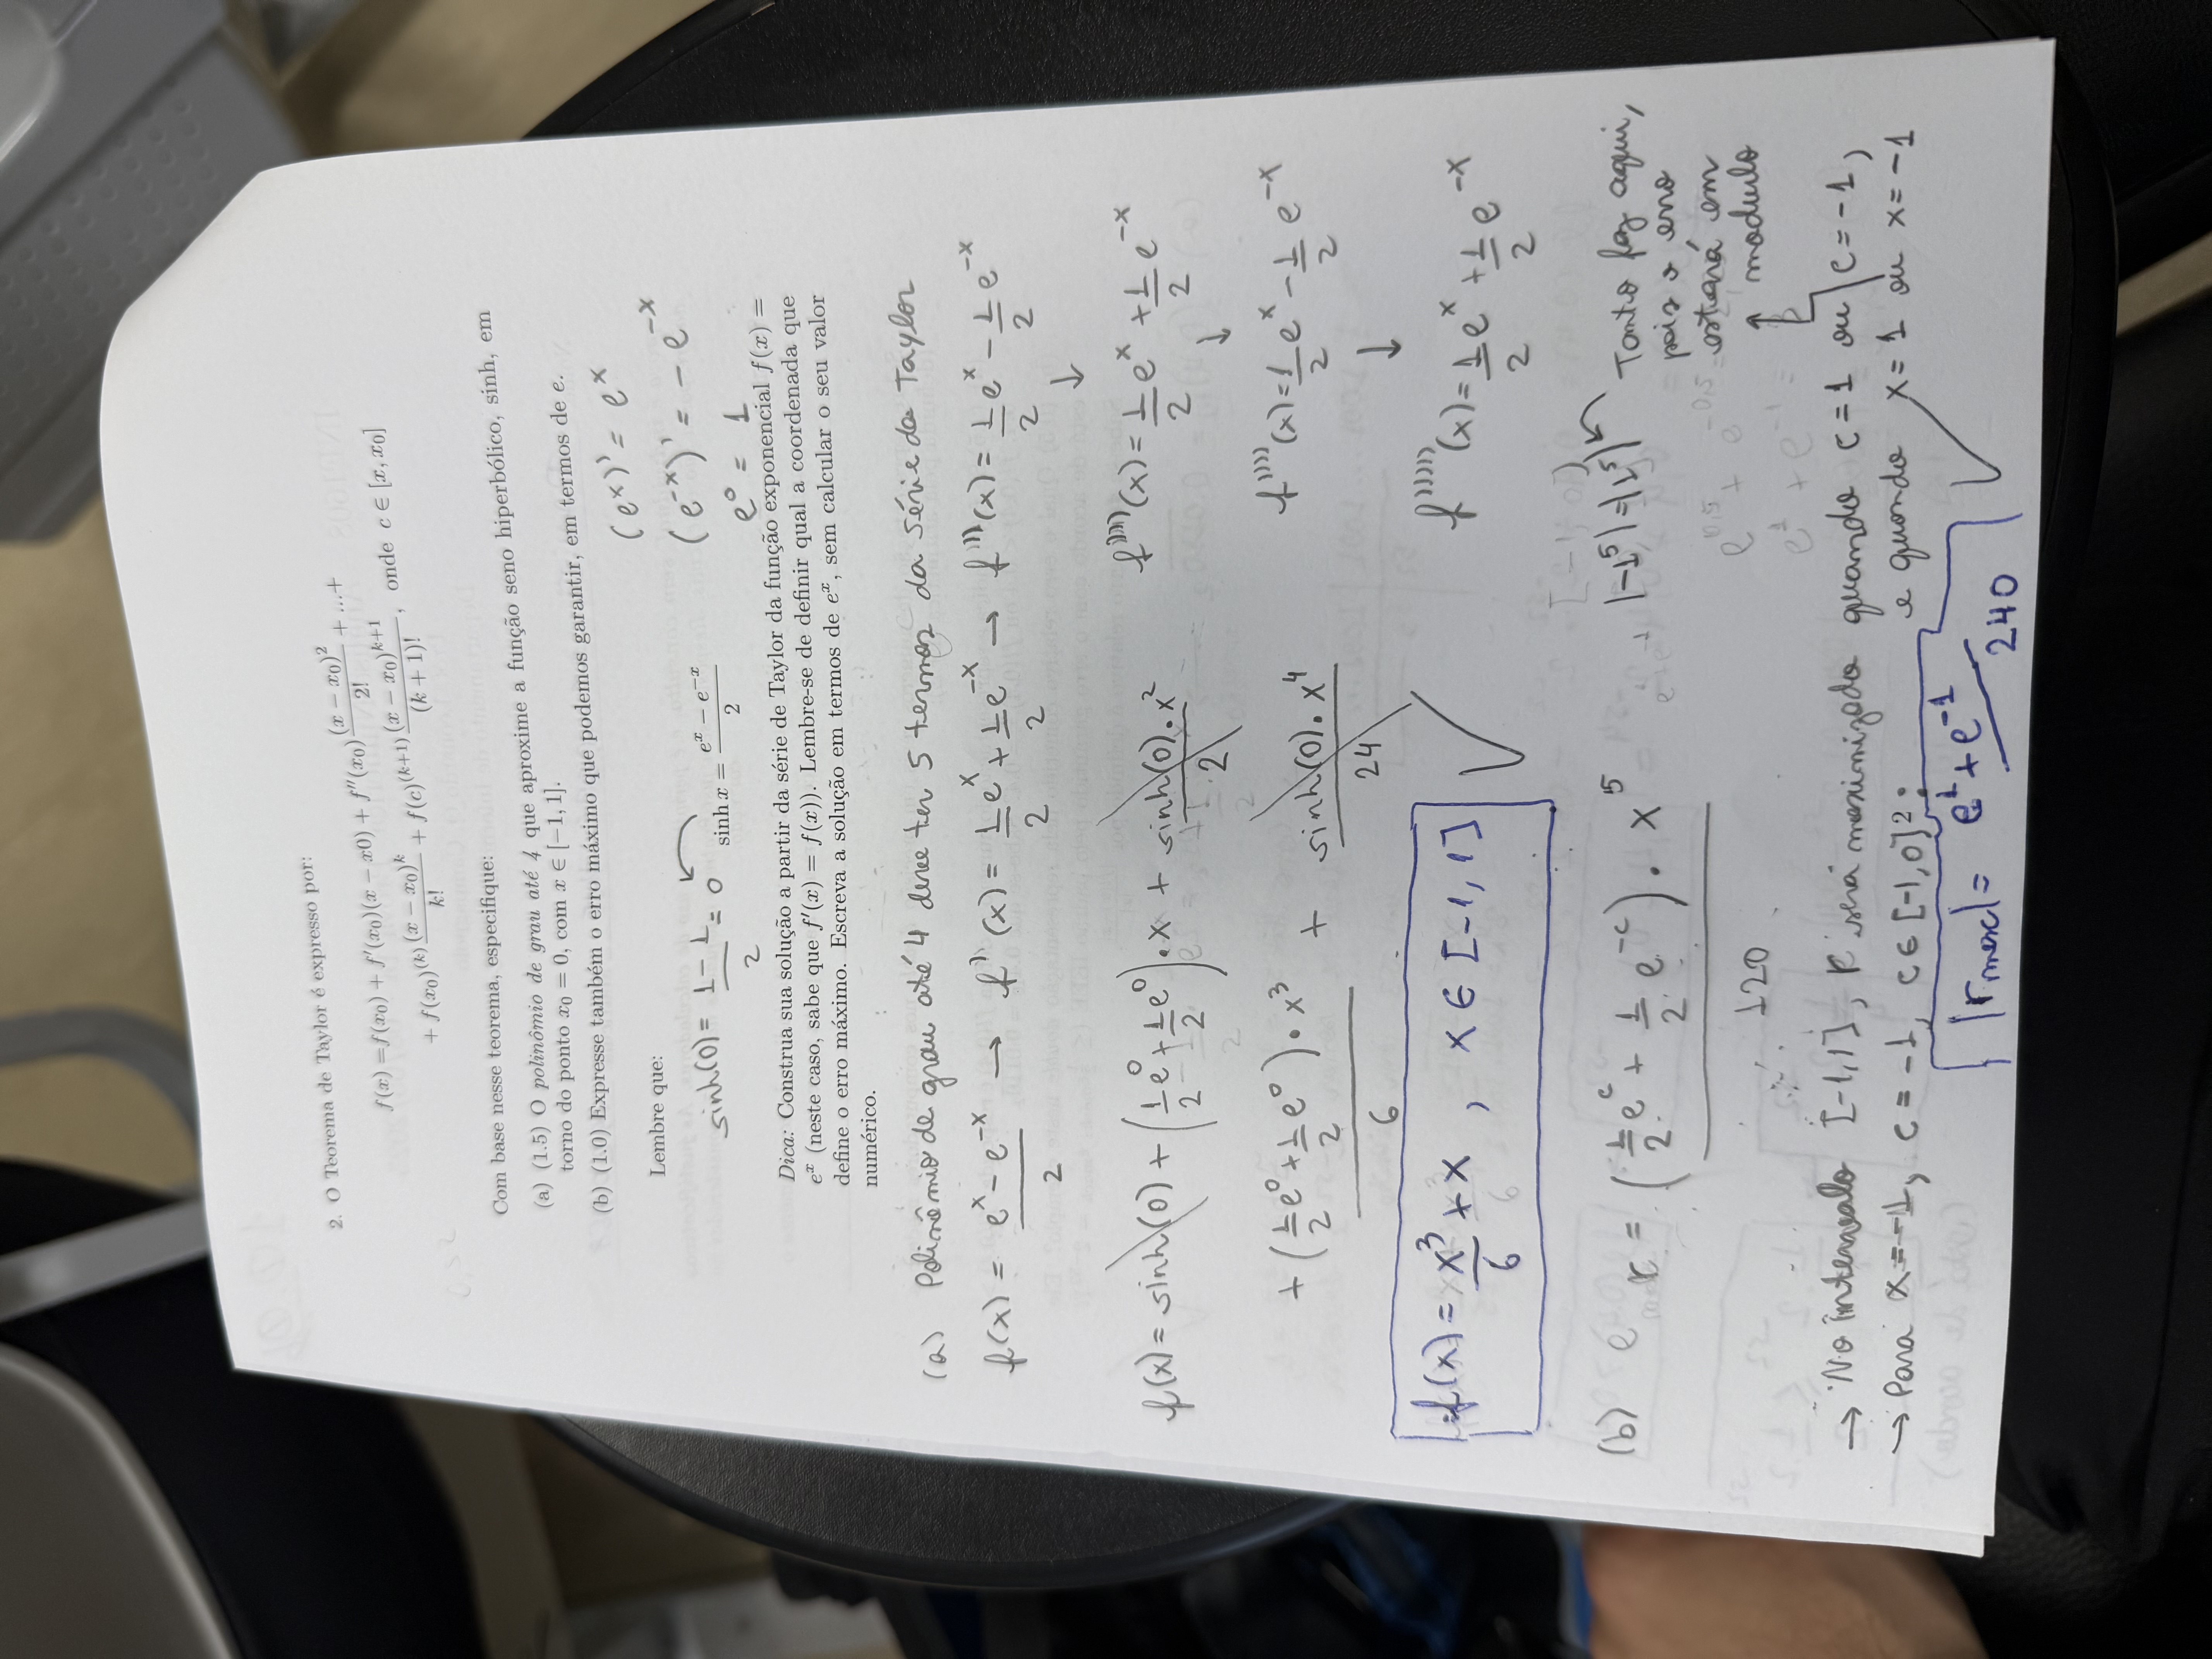 2. O Teorema de Taylor é expresso por:
f(x) =f(x₀) + f′(x₀)(x − x0) + f″(x₀) (x − x₀)²/2! + ...+
+ f(x₀)⁽ᵏ⁾ (x − x₀)ᵏ/k! + f(c)⁽ᵏ⁺¹⁾ (x − x₀)ᵏ⁺¹/(k + 1)!, onde c ∈ [x, x₀]
Com base nesse teorema, especifique:
(a) (1.5) O polinômio de grau até 4 que aproxime a função seno hiperbólico, sinh, em
torno do ponto x₀ = 0, com x ∈ [−1, 1].
(b) (1.0) Expresse também o erro máximo que podemos garantir, em termos de e.
(eˣ)' = eˣ
Lembre que:
(e⁻ˣ)' = − e⁻ˣ
sinh(0) = (1 − 1)/2 = 0
sinh x = (eˣ − e⁻ˣ)/2
e⁰ = 1
Dica: Construa sua solução a partir da série de Taylor da função exponencial f(x) =
eˣ (neste caso, sabe que f′(x) = f(x)). Lembre-se de definir qual a coordenada que
define o erro máximo. Escreva a solução em termos de eˣ, sem calcular o seu valor
numérico.
(a) Polinômio de grau até 4 deve ter 5 termos da série de Taylor
f(x) = (eˣ − e⁻ˣ)/2 → f'(x) = 1/2 eˣ + 1/2 e⁻ˣ → f''(x) = 1/2 eˣ − 1/2 e⁻ˣ
↓
f(x) = sinh(0) + (1/2 e⁰ + 1/2 e⁰) • x + sinh(0) • x²/2
f'''(x) = 1/2 eˣ + 1/2 e⁻ˣ
↓
+ (1/2 e⁰ + 1/2 e⁰) • x³/6 + sinh(0) • x⁴/24
f''''(x) = 1/2 eˣ − 1/2 e⁻ˣ
↓
f(x) = x³/6 + x , x ∈ [-1, 1]
f'''''(x) = 1/2 eˣ + 1/2 e⁻ˣ
(b) r = (1/2 eᶜ + 1/2 e⁻ᶜ) • x⁵/120
|-1⁵| = |1⁵|
Tanto faz aqui,
pois o erro
estará em
modulo
→ No intervalo [-1,1], r será maximizado quando c = 1 ou c = -1,
e quando x = 1 ou x = -1
→ Para x = -1, c = -1, c ∈ [-1,0]:
|rmax| = (e¹ + e⁻¹)/240